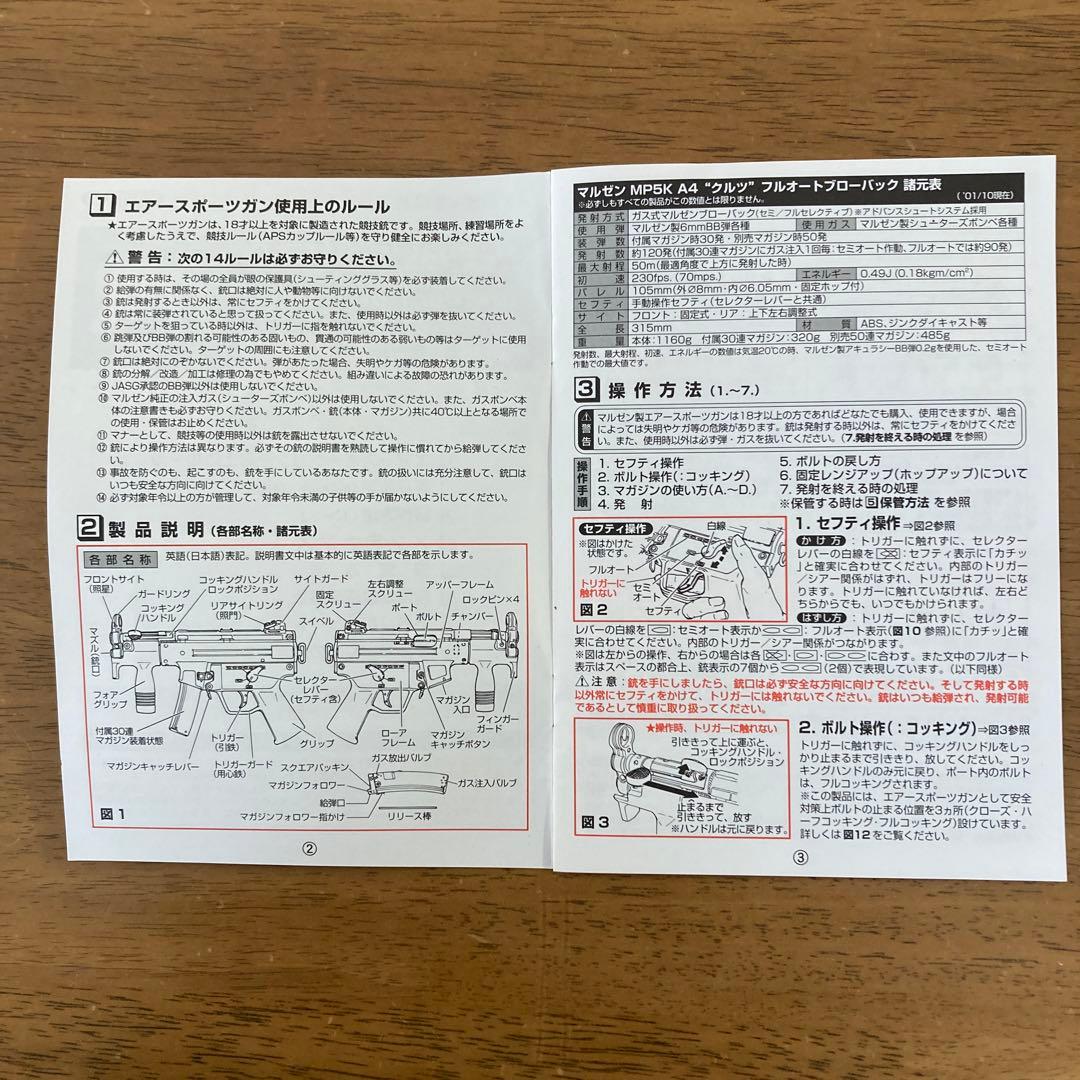 1 エアースポーツガン使用上のルール
★エアースポーツガンは、18才以上を対象に製造された競技銃です。競技場所、練習場所をよ
く考慮したうえで、競技ルール(APSカップルール等)を守り健全にお楽しみください。
⚠警告：次の14ルールは必ずお守りください。
① 使用する時は、その場の全員が眼の保護具(シューティンググラス等)を必ず装着してください。
② 給弾の有無に関係なく、銃口は絶対に人や動物等に向けないでください。
③ 銃は発射するとき以外は、常にセフティをかけてください。
④ 銃は常に装弾されていると思って扱ってください。また、使用時以外は必ず弾を抜いてください。
⑤ ターゲットを狙っている時以外は、トリガーに指を触れないでください。
⑥ 跳弾及びBB弾の割れる可能性のある固いもの、貫通の可能性のある弱いもの等はターゲットに使用
しないでください。ターゲットの周囲にも注意してください。
⑦ 銃口は絶対にのぞかないでください。弾があたった場合、失明やケガ等の危険があります。
⑧ 銃の分解／改造／加工は修理の為でもやめてください。組み違いによる故障の恐れがあります。
⑨ JASG承認のBB弾以外は使用しないでください。
⑩ マルゼン純正の注入ガス(シューターズボンベ)以外は使用しないでください。また、ガスボンベ本
体の注意書きも必ずお守りください。ガスボンベ・銃(本体・マガジン)共に40℃以上となる場所で
の使用・保管はお止めください。
⑪ マナーとして、競技等の使用時以外は銃を露出させないでください。
⑫ 銃により操作方法は異なります。必ずその銃の説明書を熟読して操作に慣れてから給弾してくださ
い。
⑬ 事故を防ぐのも、起こすのも、銃を手にしているあなたです。銃の扱いには充分注意して、銃口は
いつも安全な方向に向けてください。
⑭ 必ず対象年令以上の方が管理して、対象年令未満の子供等の手が届かないようにしてください。
2 製品説明(各部名称・諸元表)
各部名称 英語(日本語)表記。説明書文中は基本的に英語表記で各部を示します。
フロントサイト
(照星)
ガードリング
コッキング
ハンドル
コッキングハンドル
ロックポジション
リアサイトリング
(照門)
サイトガード
固定
スクリュー
スイベル
左右調整
スクリュー
ポート
ボルト
アッパーフレーム
チャンバー
ロックピン×4
マズル(銃口)
フォア
グリップ
付属30連
マガジン装着状態
マガジンキャッチレバー
トリガー
(引鉄)
トリガーガード
(用心鉄)
グリップ
セレクター
レバー
(セフティ含)
ローア
フレーム
マガジン
入口
マガジン
キャッチボタン
フィンガー
ガード
ガス放出バルブ
スクエアパッキン
マガジンフォロワー
給弾口
マガジンフォロワー指かけ
ガス注入バルブ
リリース棒
図1
②
マルゼン MP5K A4 “クルツ” フルオートブローバック 諸元表
※必ずしもすべての製品がこの数値とは限りません。 ('01/10現在)
発射方式 ガス式マルゼンブローバック(セミ／フルセレクティブ)※アドバンスシュートシステム採用
使用弾 マルゼン製6mmBB弾各種 使用ガス マルゼン製シューターズボンベ各種
装弾数 付属マガジン時30発・別売マガジン時50発
発射数 約120発(付属30連マガジンにガス注入1回毎：セミオート作動、フルオートでは約90発)
最大射程 50m(最適角度で上方に発射した時)
初速 230fps.(70mps.) エネルギー 0.49J(0.18kgm/cm²)
バレル 105mm(外Ø8mm・内Ø6.05mm・固定ホップ付)
セフティ 手動操作セフティ(セレクターレバーと共通)
サイト フロント：固定式・リア：上下左右調整式
全長 315mm 材質 ABS、ジンクダイキャスト等
重量 本体：1160g 付属30連マガジン：320g 別売50連マガジン：485g
発射数、最大射程、初速、エネルギーの数値は気温20℃の時、マルゼン製アキュラシーBB弾0.2gを使用した、セミオート
作動での最大値です。
3 操作方法(1.〜7.)
⚠警告 マルゼン製エアースポーツガンは18才以上の方であればどなたでも購入、使用できますが、場合
によっては失明やケガ等の危険があります。銃は発射する時以外は、常にセフティをかけてくださ
い。また、使用時以外は必ず弾・ガスを抜いてください。(7.発射を終える時の処理 を参照)
操作手順
1. セフティ操作
2. ボルト操作(：コッキング)
3. マガジンの使い方(A.〜D.)
4. 発 射
5. ボルトの戻し方
6. 固定レンジアップ(ホップアップ)について
7. 発射を終える時の処理
※保管する時は5保管方法 を参照
セフティ操作
白線
※図はかけた
状態です。
フルオート
トリガーに
触れない
セミ
オート
セフティ
図2
1. セフティ操作⇒図2参照
かけ方：トリガーに触れずに、セレクター
レバーの白線を：セフティ表示に「カチッ」
と確実に合わせてください。内部のトリガー
／シアー関係がはずれ、トリガーはフリーにな
ります。トリガーに触れていなければ、左右ど
ちらからでも、いつでもかけられます。
はずし方：トリガーに触れずに、セレクター
レバーの白線を：セミオート表示か：フルオート表示(図10 参照)に「カチッ」と確
実に合わせてください。内部のトリガー／シアー関係がつながります。
※図は左からの操作、右からの場合は各・・に合わす。また文中のフルオート
表示はスペースの都合上、銃表示の7個から(2個)で表現しています。(以下同様)
⚠注意：銃を手にしましたら、銃口は必ず安全な方向に向けてください。そして発射する時
以外常にセフティをかけて、トリガーには触れないでください。銃はいつも給弾され、発射可能
であるとして慎重に取り扱ってください。
★操作時、トリガーに触れない
引ききって上に運ぶと、
コッキングハンドル・
ロックポジション
止まるまで
引ききって、放す
※ハンドルは元に戻ります。
図3
2. ボルト操作(：コッキング)⇒図3参照
トリガーに触れずに、コッキングハンドルをしっ
かり止まるまで引ききり、放してください。コッ
キングハンドルのみ元に戻り、ポート内のボルト
は、フルコッキングされます。
※この製品には、エアースポーツガンとして安全
対策上ボルトの止まる位置を3ヵ所(クローズ・ハ
ーフコッキング・フルコッキング)設けています。
詳しくは図12をご覧ください。
③